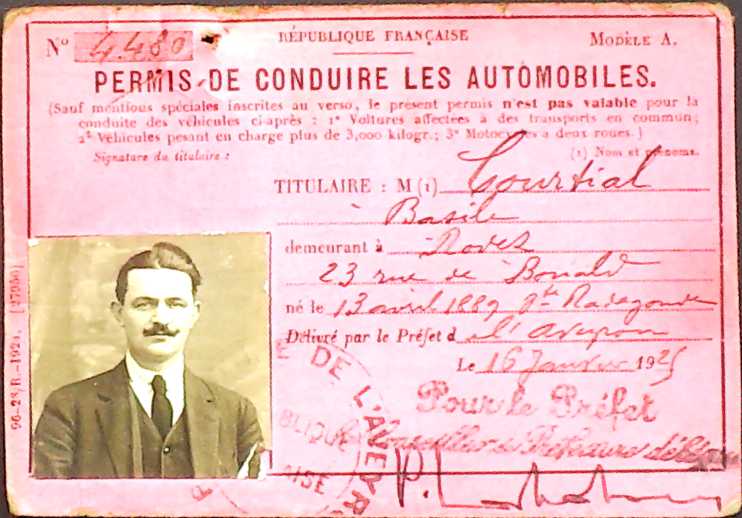 RÉPUBLIQUE FRANÇAISE
N° 4.480
MODÈLE A.
PERMIS DE CONDUIRE LES AUTOMOBILES.
(Sauf mentions spéciales inscrites au verso, le présent permis n'est pas valable pour la
conduite des véhicules ci-après : 1° Voitures affectées à des transports en commun;
2° Véhicules pesant en charge plus de 3,000 kilogr.; 3° Motocycles à deux roues.)
Signature du titulaire :
(1) Nom et prénoms.
TITULAIRE : M (1) Courtial
Basile
demeurant à Rodez
23 rue de Bonald
né le 13 avril 1889 Ste Radegonde
Délivré par le Préfet d l'Aveyron
Le 16 Janvier 1925
Pour le Préfet
Conseiller de Préfecture délégué
DE L'AVEYR